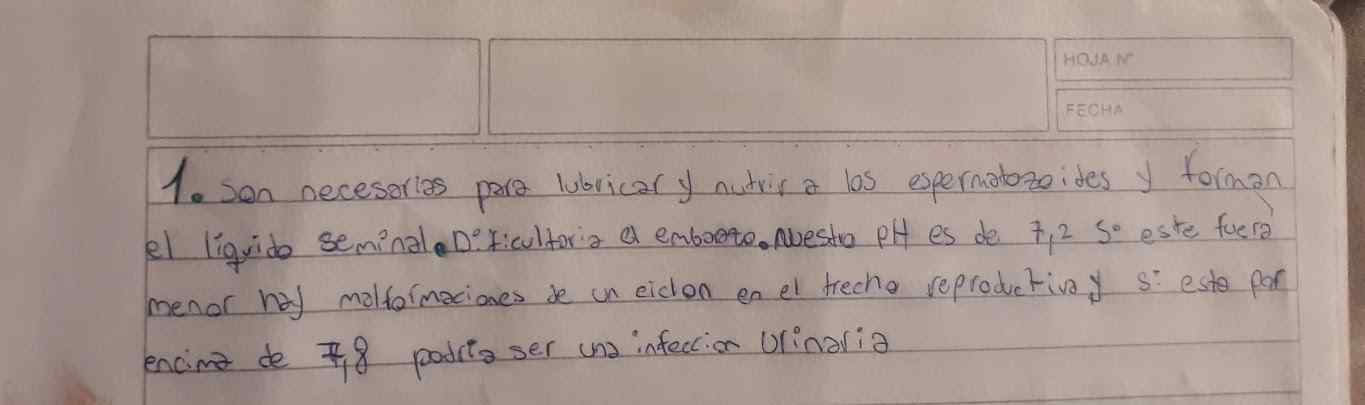 HOJA N°
FECHA
1. Son necesarias para lubricar y nutrir a los espermatozoides y forman
el líquido seminal. Dificultaria el embarazo. Nuestro pH es de 7,2 Si este fuera
menor hay malformaciones de un eiclon en el trecho reproductivo y si esta por
encima de 7,8 podria ser una infeccion Urinaria